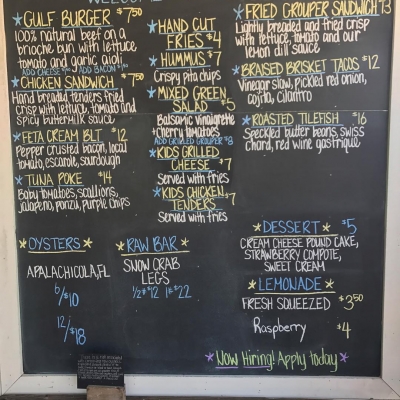 WELCOME
*GULF BURGER $7.50
100% natural beef on a
brioche bun with lettuce,
tomato and garlic aioli
ADD CHEESE ADD BACON
*CHICKEN SANDWICH $7.50
Hand breaded tenders fried
crisp with lettuce, tomato and
spicy buttermilk sauce
*FETA CREAM BLT $12
Pepper crusted bacon, local
tomato, escarole, sourdough
*TUNA POKE $14
Baby tomatoes, scallions,
jalapeno, ponzu, purple chips
*OYSTERS*
APALACHICOLA, FL
6/$10
12/$18
*HAND CUT
FRIES $4
*HUMMUS $7
Crispy pita chips
*MIXED GREEN
SALAD $5
Balsamic vinaigrette
+cherry tomatoes
ADD GRILLED GROUPER $8
*KIDS GRILLED
CHEESE $7
Served with fries
*KIDS CHICKEN
TENDERS $7
Served with fries
*RAW BAR*
SNOW CRAB
LEGS
1/2# $12 1# $22
*FRIED GROUPER SANDWICH $13
Lightly breaded and fried crisp
with lettuce, tomato and our
lemon dill sauce
*BRAISED BRISKET TACOS $12
Vinegar slaw, pickled red onion,
cojita, cilantro
*ROASTED TILEFISH $16
Speckled butter beans, swiss
chard, red wine gastrique
*DESSERT* $5
CREAM CHEESE POUND CAKE,
STRAWBERRY COMPOTE,
SWEET CREAM
*LEMONADE*
FRESH SQUEEZED $3.50
Raspberry $4
*Now Hiring! Apply today*